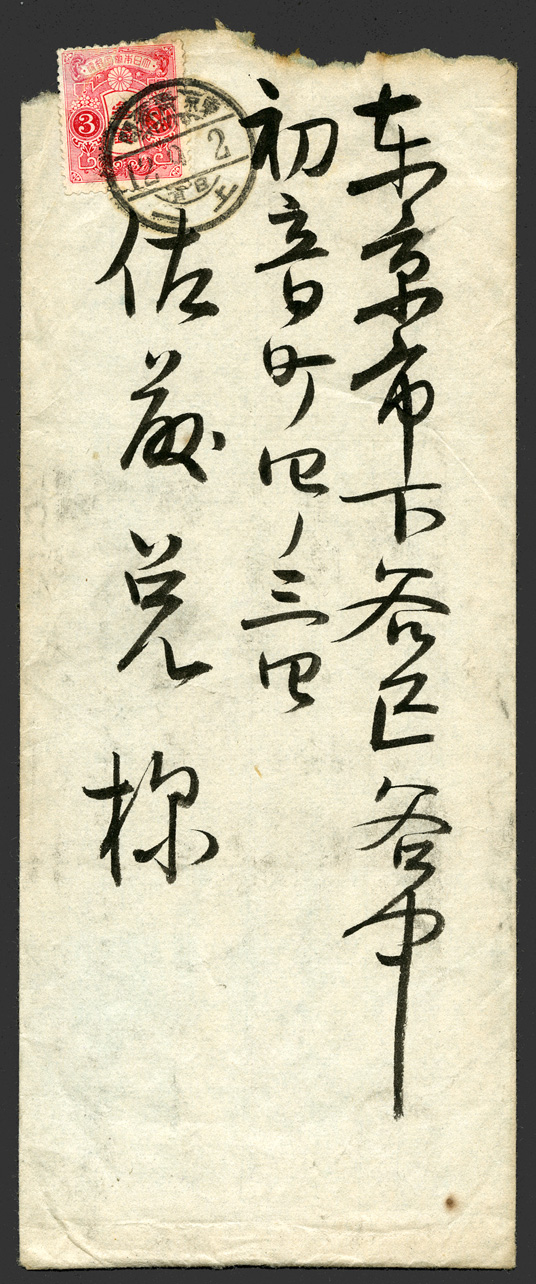 東京市下谷区谷中
初音町四ノ三四
佐藤兌様
大日本帝國郵便
3
東京
2